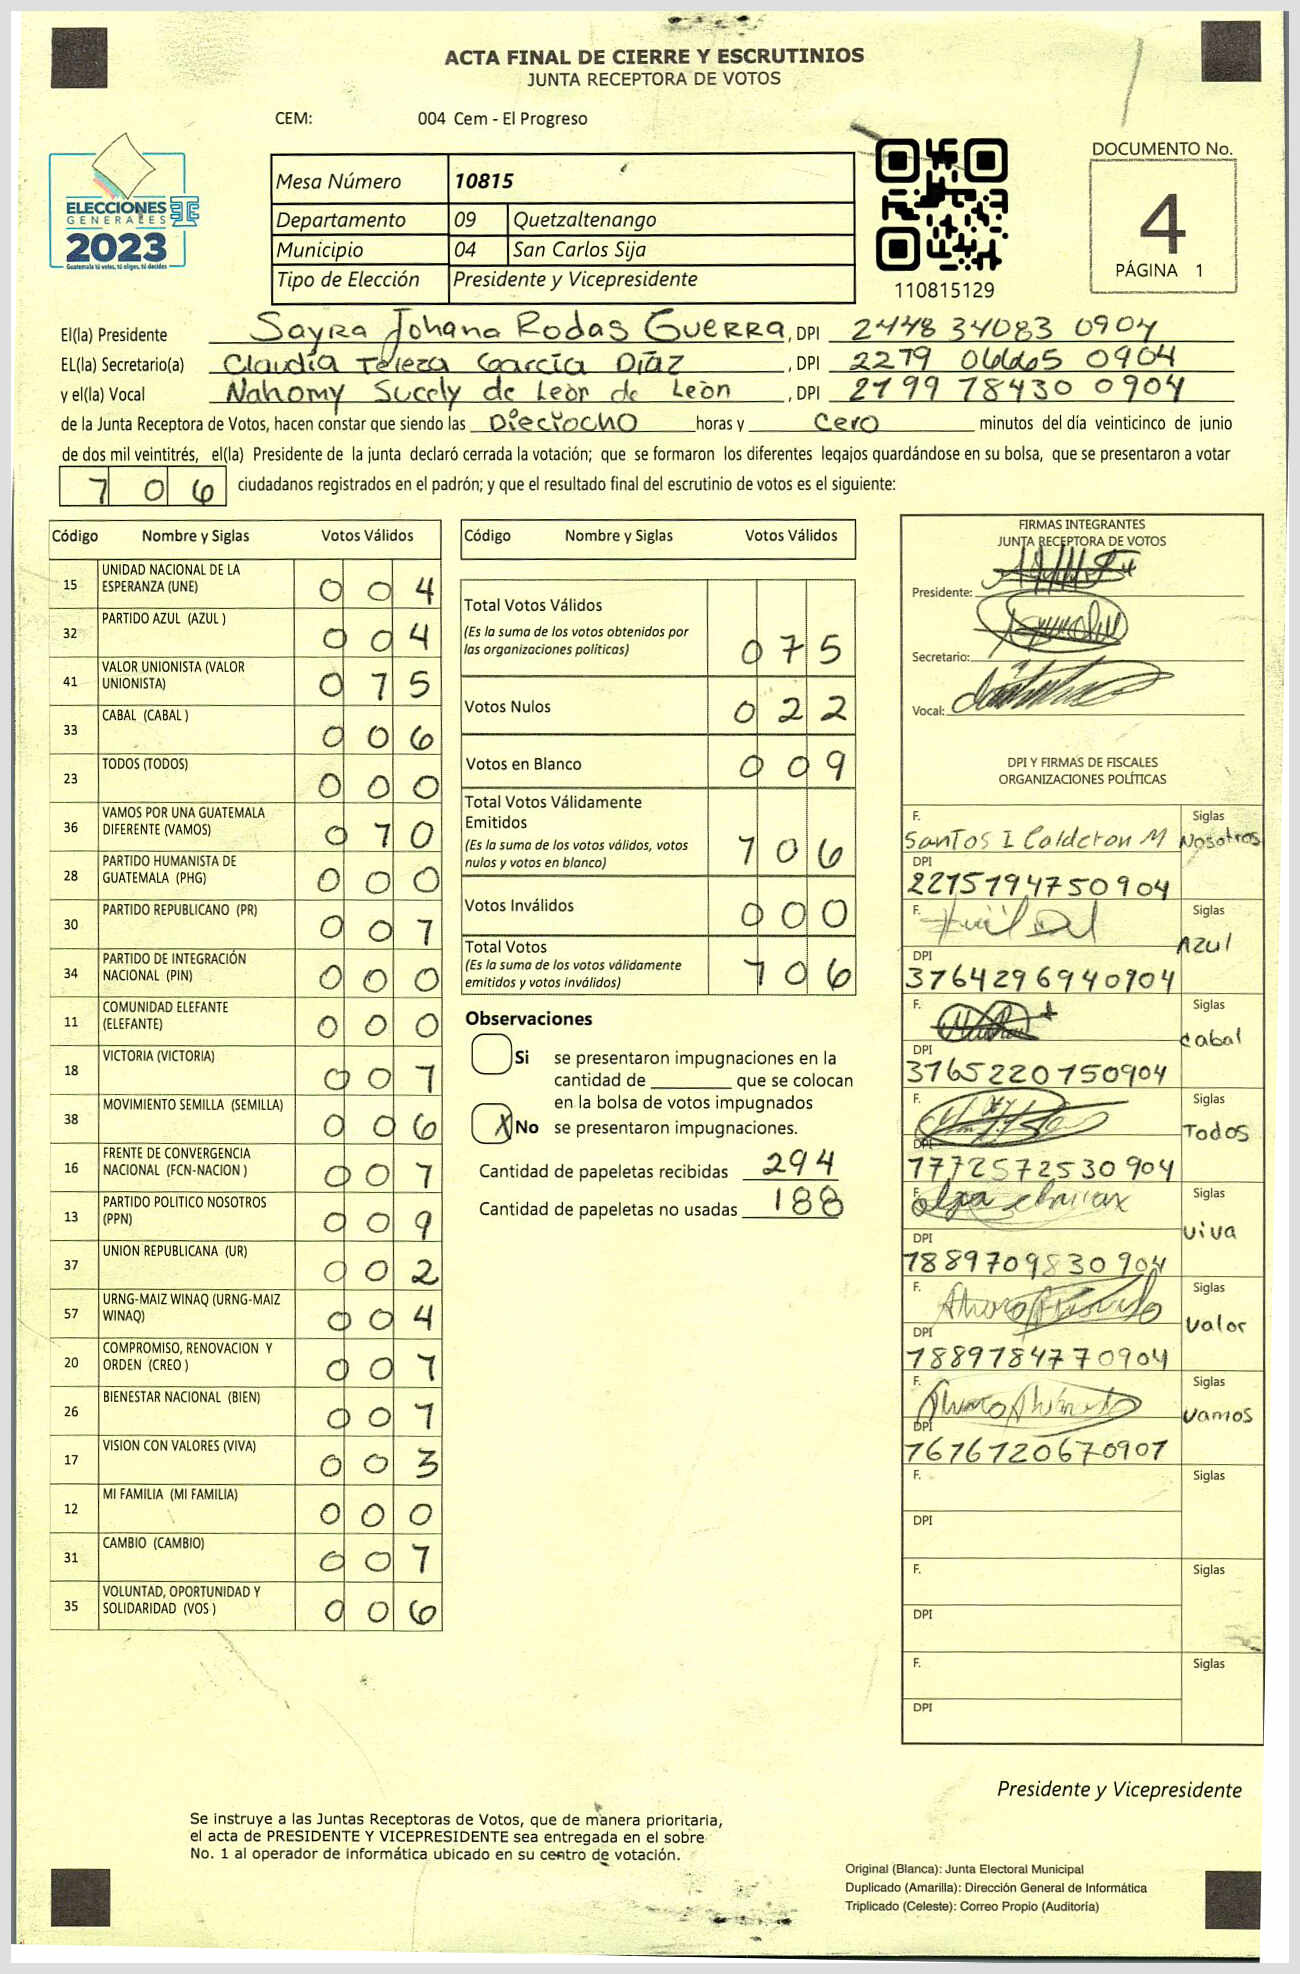 ACTA FINAL DE CIERRE Y ESCRUTINIOS
JUNTA RECEPTORA DE VOTOS
CEM: 004 Cem - El Progreso
DOCUMENTO No.
4
PÁGINA 1
ELECCIONES
GENERALES
2023
Guatemala tú votas, tú eliges, tú decides
Mesa Número 10815
Departamento 09 Quetzaltenango
Municipio 04 San Carlos Sija
Tipo de Elección Presidente y Vicepresidente
110815129
El(la) Presidente Sayra Johana Rodas Guerra, DPI 2448 34083 0904
EL(la) Secretario(a) Claudia Tereza García Díaz, DPI 2279 06665 0904
y el(la) Vocal Nahomy Sucely de Leòn de Leòn, DPI 2199 78430 0904
de la Junta Receptora de Votos, hacen constar que siendo las Dieciocho horas y Cero minutos del día veinticinco de junio
de dos mil veintitrés, el(la) Presidente de la junta declaró cerrada la votación; que se formaron los diferentes legajos guardándose en su bolsa, que se presentaron a votar
706 ciudadanos registrados en el padrón; y que el resultado final del escrutinio de votos es el siguiente:
Código Nombre y Siglas Votos Válidos
15 UNIDAD NACIONAL DE LA
ESPERANZA (UNE) 004
32 PARTIDO AZUL (AZUL ) 004
41 VALOR UNIONISTA (VALOR
UNIONISTA) 075
33 CABAL (CABAL ) 006
23 TODOS (TODOS) 000
36 VAMOS POR UNA GUATEMALA
DIFERENTE (VAMOS) 010
28 PARTIDO HUMANISTA DE
GUATEMALA (PHG) 000
30 PARTIDO REPUBLICANO (PR) 007
34 PARTIDO DE INTEGRACIÓN
NACIONAL (PIN) 000
11 COMUNIDAD ELEFANTE
(ELEFANTE) 000
18 VICTORIA (VICTORIA) 001
38 MOVIMIENTO SEMILLA (SEMILLA) 006
16 FRENTE DE CONVERGENCIA
NACIONAL (FCN-NACION ) 001
13 PARTIDO POLITICO NOSOTROS
(PPN) 009
37 UNION REPUBLICANA (UR) 002
57 URNG-MAIZ WINAQ (URNG-MAIZ
WINAQ) 004
20 COMPROMISO, RENOVACION Y
ORDEN (CREO ) 001
26 BIENESTAR NACIONAL (BIEN) 001
17 VISION CON VALORES (VIVA) 003
12 MI FAMILIA (MI FAMILIA) 000
31 CAMBIO (CAMBIO) 007
35 VOLUNTAD, OPORTUNIDAD Y
SOLIDARIDAD (VOS ) 006
Código Nombre y Siglas Votos Válidos
Total Votos Válidos
(Es la suma de los votos obtenidos por
las organizaciones políticas) 075
Votos Nulos 022
Votos en Blanco 009
Total Votos Válidamente
Emitidos
(Es la suma de los votos válidos, votos
nulos y votos en blanco) 106
Votos Inválidos 000
Total Votos
(Es la suma de los votos válidamente
emitidos y votos inválidos) 106
Observaciones
Si se presentaron impugnaciones en la
cantidad de ________ que se colocan
en la bolsa de votos impugnados
X No se presentaron impugnaciones.
Cantidad de papeletas recibidas 294
Cantidad de papeletas no usadas 188
FIRMAS INTEGRANTES
JUNTA RECEPTORA DE VOTOS
Presidente:
Secretario:
Vocal:
DPI Y FIRMAS DE FISCALES
ORGANIZACIONES POLÍTICAS
F. Siglas
Santos I Calderon M Nosotros
DPI
2215194750904
F. Siglas
Azul
DPI
3764296940904
F. Siglas
cabal
DPI
3765220750904
F. Siglas
Todos
DPI
1772572530904
F. Siglas
viva
DPI
1889709830904
F. Siglas
valor
DPI
1889784770904
F. Siglas
vamos
DPI
1616120670901
F. Siglas
DPI
F. Siglas
DPI
F. Siglas
DPI
Presidente y Vicepresidente
Se instruye a las Juntas Receptoras de Votos, que de manera prioritaria,
el acta de PRESIDENTE Y VICEPRESIDENTE sea entregada en el sobre
No. 1 al operador de informática ubicado en su centro de votación.
Original (Blanca): Junta Electoral Municipal
Duplicado (Amarilla): Dirección General de Informática
Triplicado (Celeste): Correo Propio (Auditoría)